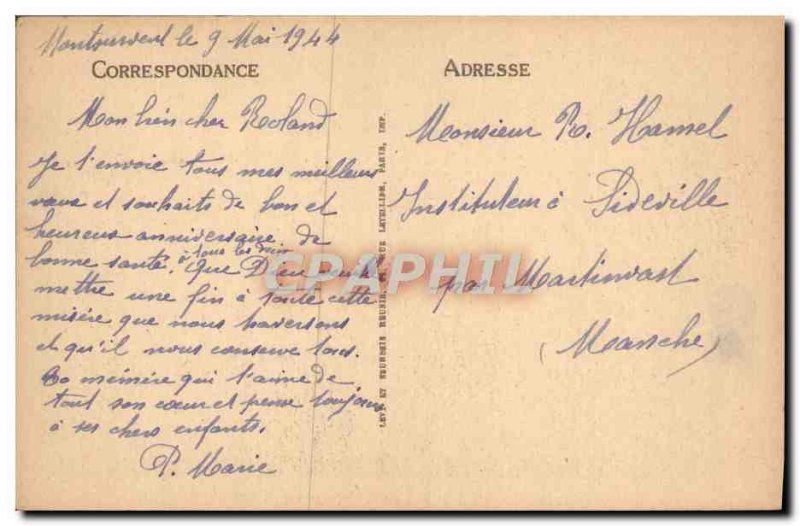 Montsurvent le 9 Mai 1944
CORRESPONDANCE
Mon bien cher Roland
Je t'envoie tous mes meilleurs
vœux et souhaits de bon et
heureux anniversaire, de
bonne santé, à tous les deux. Que Dieu
mettre une fin à toute cette
misère que nous traversons
et qu'il nous conserve tous.
Ta mémère qui t'aime de
tout son cœur et pense toujours
à ses chers enfants.
P. Marie
LEVY ET NEURDEIN REUNIS, RUE LETELLIER, PARIS, IMP.
ADRESSE
Monsieur R. Hamel
Instituteur à Sideville
par Martinvast
(Manche)
CPAPHIL